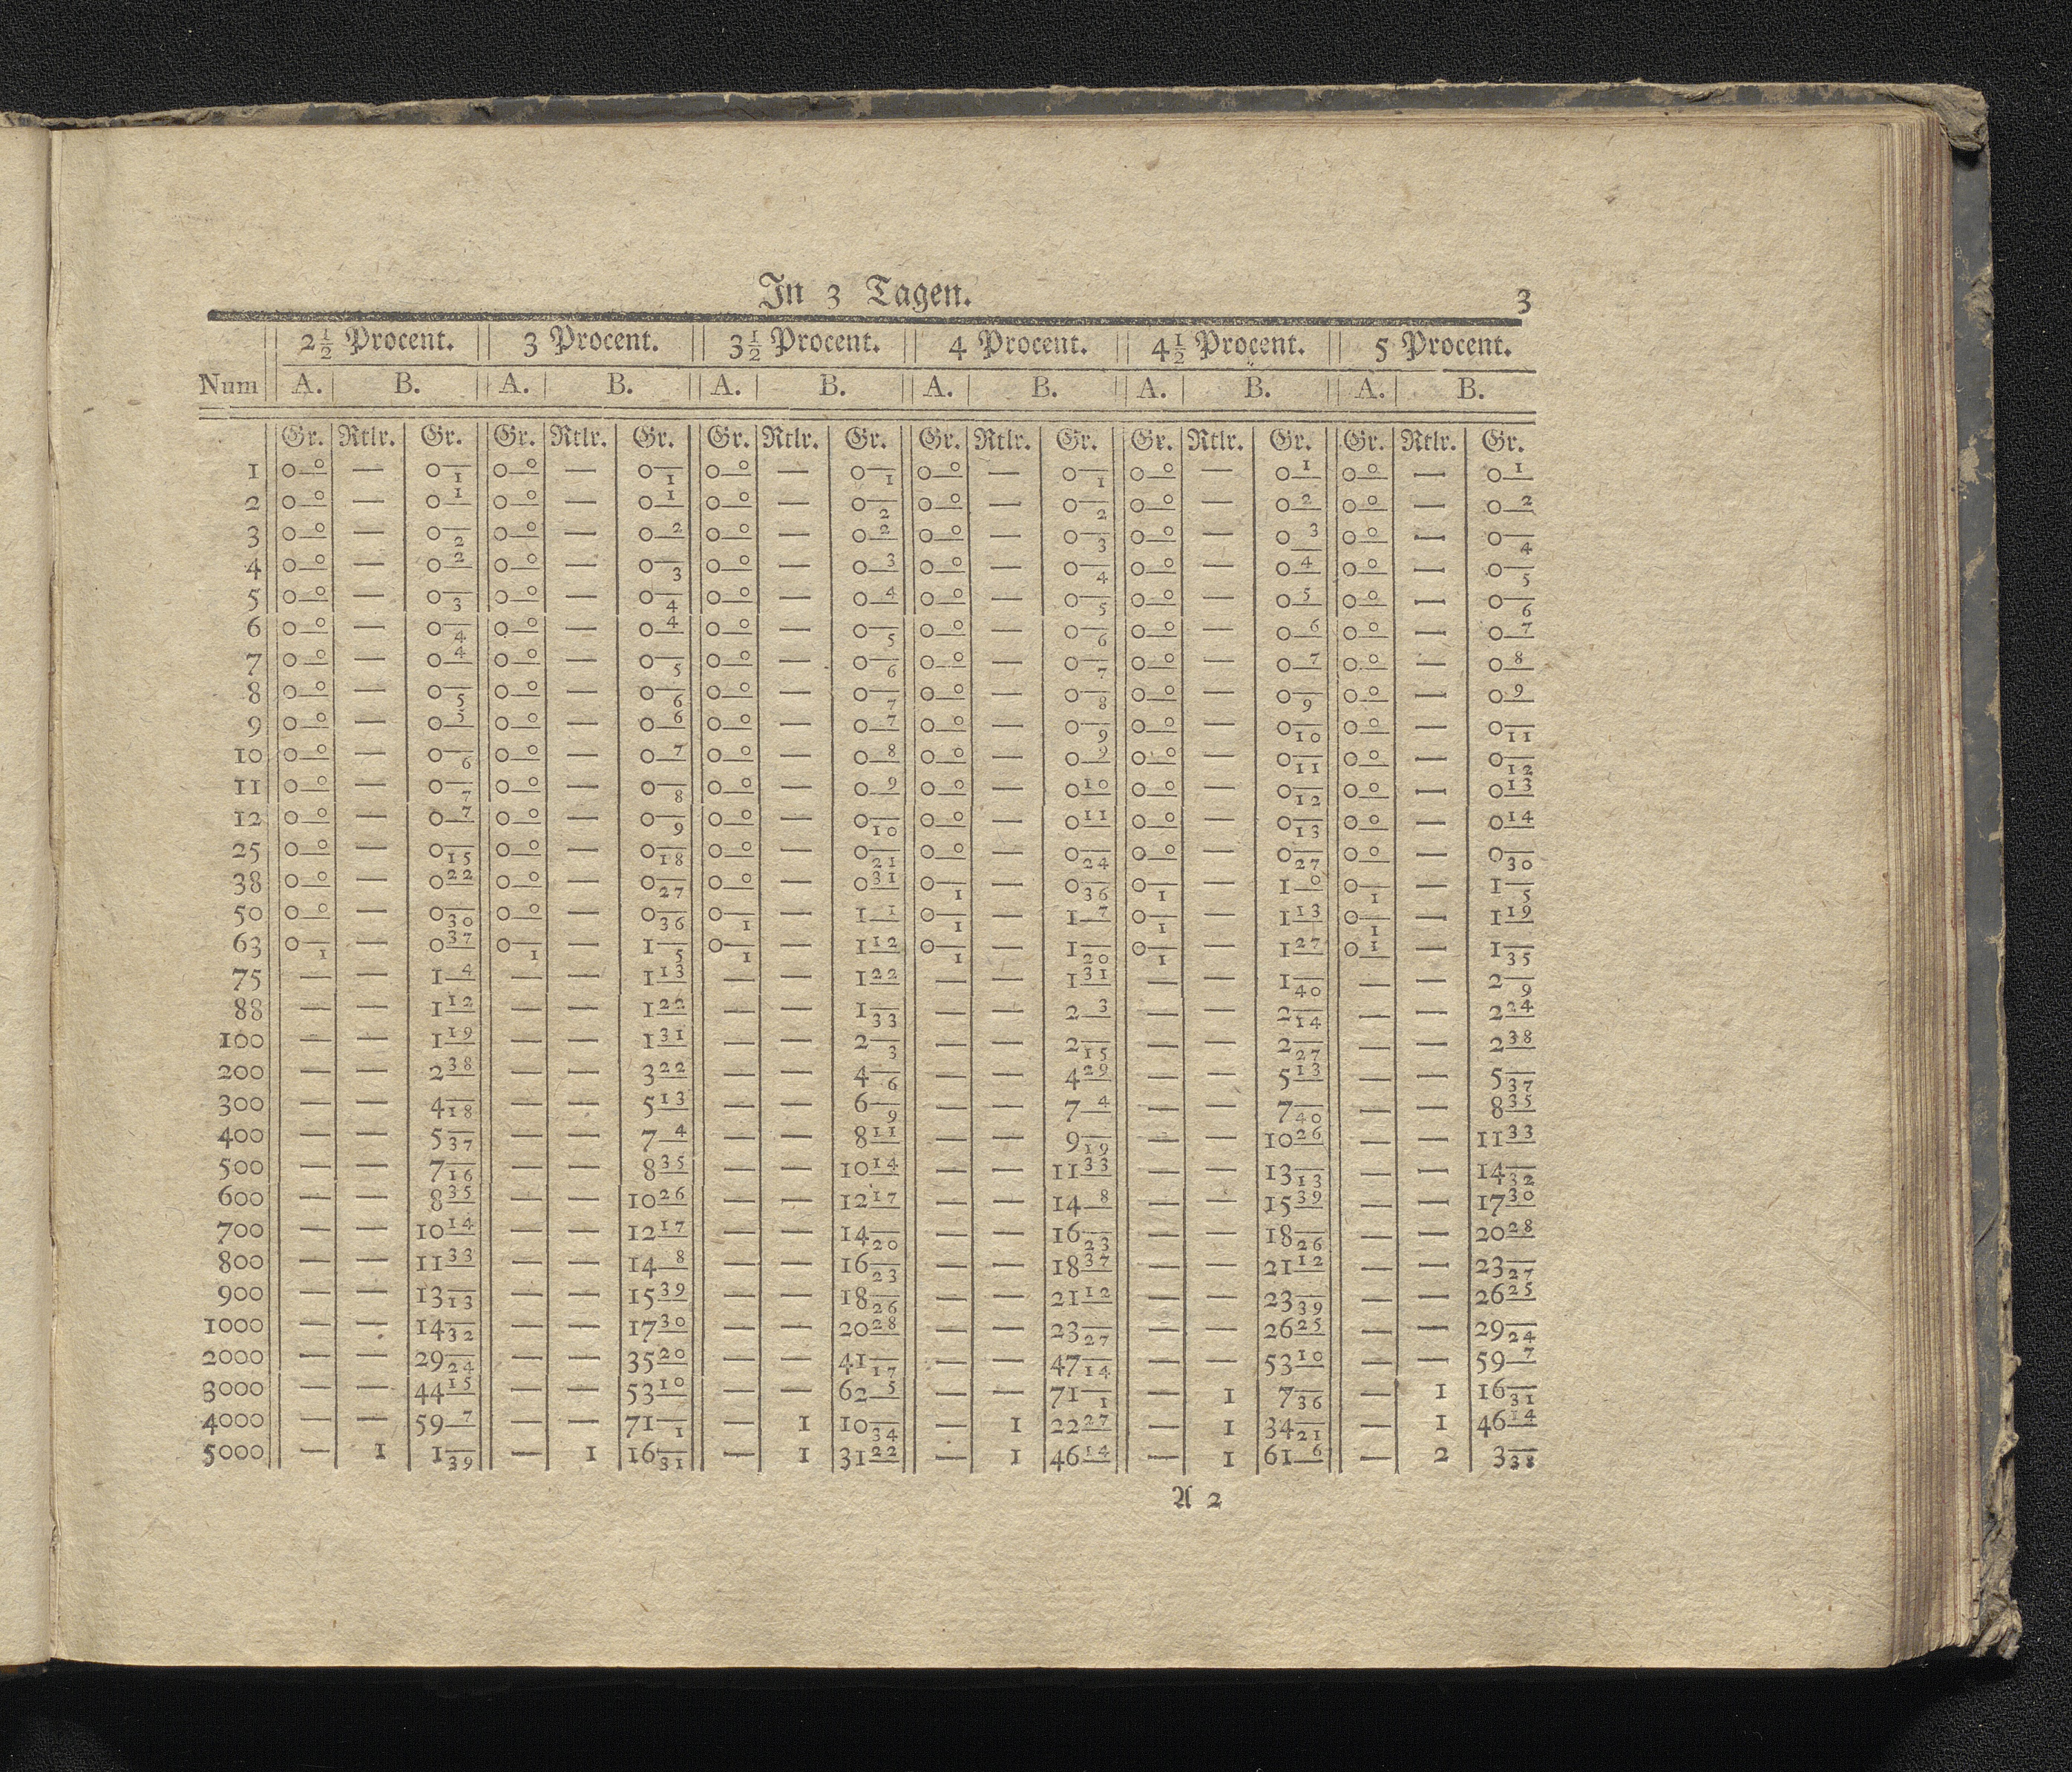 In 3 Tagen. 3
2½ Procent. 3 Procent. 3½ Procent. 4 Procent. 4½ Procent. 5 Procent.
Num A. B. A. B. A. B. A. B. A. B. A. B.
Gr. Rtlr. Gr. Gr. Rtlr. Gr. Gr. Rtlr. Gr. Gr. Rtlr. Gr. Gr. Rtlr. Gr. Gr. Rtlr. Gr.
1 0 0 — 0 1 0 0 — 0 1 0 0 — 0 1 0 0 — 0 1 0 0 — 0 1 0 0 — 0 1
2 0 0 — 0 1 0 0 — 0 1 0 0 — 0 2 0 0 — 0 2 0 0 — 0 2 0 0 — 0 2
3 0 0 — 0 2 0 0 — 0 2 0 0 — 0 2 0 0 — 0 3 0 0 — 0 3 0 0 — 0 4
4 0 0 — 0 2 0 0 — 0 3 0 0 — 0 3 0 0 — 0 4 0 0 — 0 4 0 0 — 0 5
5 0 0 — 0 3 0 0 — 0 4 0 0 — 0 4 0 0 — 0 5 0 0 — 0 5 0 0 — 0 6
6 0 0 — 0 4 0 0 — 0 4 0 0 — 0 5 0 0 — 0 6 0 0 — 0 6 0 0 — 0 7
7 0 0 — 0 4 0 0 — 0 5 0 0 — 0 6 0 0 — 0 7 0 0 — 0 7 0 0 — 0 8
8 0 0 — 0 5 0 0 — 0 6 0 0 — 0 7 0 0 — 0 8 0 0 — 0 9 0 0 — 0 9
9 0 0 — 0 5 0 0 — 0 6 0 0 — 0 7 0 0 — 0 9 0 0 — 0 10 0 0 — 0 11
10 0 0 — 0 6 0 0 — 0 7 0 0 — 0 8 0 0 — 0 9 0 0 — 0 11 0 0 — 0 12
11 0 0 — 0 7 0 0 — 0 8 0 0 — 0 9 0 0 — 0 10 0 0 — 0 12 0 0 — 0 13
12 0 0 — 0 7 0 0 — 0 9 0 0 — 0 10 0 0 — 0 11 0 0 — 0 13 0 0 — 0 14
25 0 0 — 0 15 0 0 — 0 18 0 0 — 0 21 0 0 — 0 24 0 0 — 0 27 0 0 — 0 30
38 0 0 — 0 22 0 0 — 0 27 0 0 — 0 31 0 1 — 0 36 0 1 — 1 0 0 1 — 1 5
50 0 0 — 0 30 0 0 — 0 36 0 1 — 1 1 0 1 — 1 7 0 1 — 1 13 0 1 — 1 19
63 0 1 — 0 37 0 1 — 1 5 0 1 — 1 12 0 1 — 1 20 0 1 — 1 27 0 1 — 1 35
75 — — 1 4 — — 1 13 — — 1 22 — — 1 31 — — 1 40 — — 2 9
88 — — 1 12 — — 1 22 — — 1 33 — — 2 3 — — 2 14 — — 2 24
100 — — 1 19 — — 1 31 — — 2 3 — — 2 15 — — 2 27 — — 2 38
200 — — 2 38 — — 3 22 — — 4 6 — — 4 29 — — 5 13 — — 5 37
300 — — 4 18 — — 5 13 — — 6 9 — — 7 4 — — 7 40 — — 8 35
400 — — 5 37 — — 7 4 — — 8 11 — — 9 19 — — 10 26 — — 11 33
500 — — 7 16 — — 8 35 — — 10 14 — — 11 33 — — 13 13 — — 14 32
600 — — 8 35 — — 10 26 — — 12 17 — — 14 8 — — 15 39 — — 17 30
700 — — 10 14 — — 12 17 — — 14 20 — — 16 23 — — 18 26 — — 20 28
800 — — 11 33 — — 14 8 — — 16 23 — — 18 37 — — 21 12 — — 23 27
900 — — 13 13 — — 15 39 — — 18 26 — — 21 12 — — 23 39 — — 26 25
1000 — — 14 32 — — 17 30 — — 20 28 — — 23 27 — — 26 25 — — 29 24
2000 — — 29 24 — — 35 20 — — 41 17 — — 47 14 — — 53 10 — — 59 7
3000 — — 44 15 — — 53 10 — — 62 5 — — 71 1 — 1 7 36 — 1 16 31
4000 — — 59 7 — — 71 1 — 1 10 34 — 1 22 27 — 1 34 21 — 1 46 14
5000 — 1 1 39 — 1 16 31 — 1 31 22 — 1 46 14 — 1 61 6 — 2 3 38
A 2